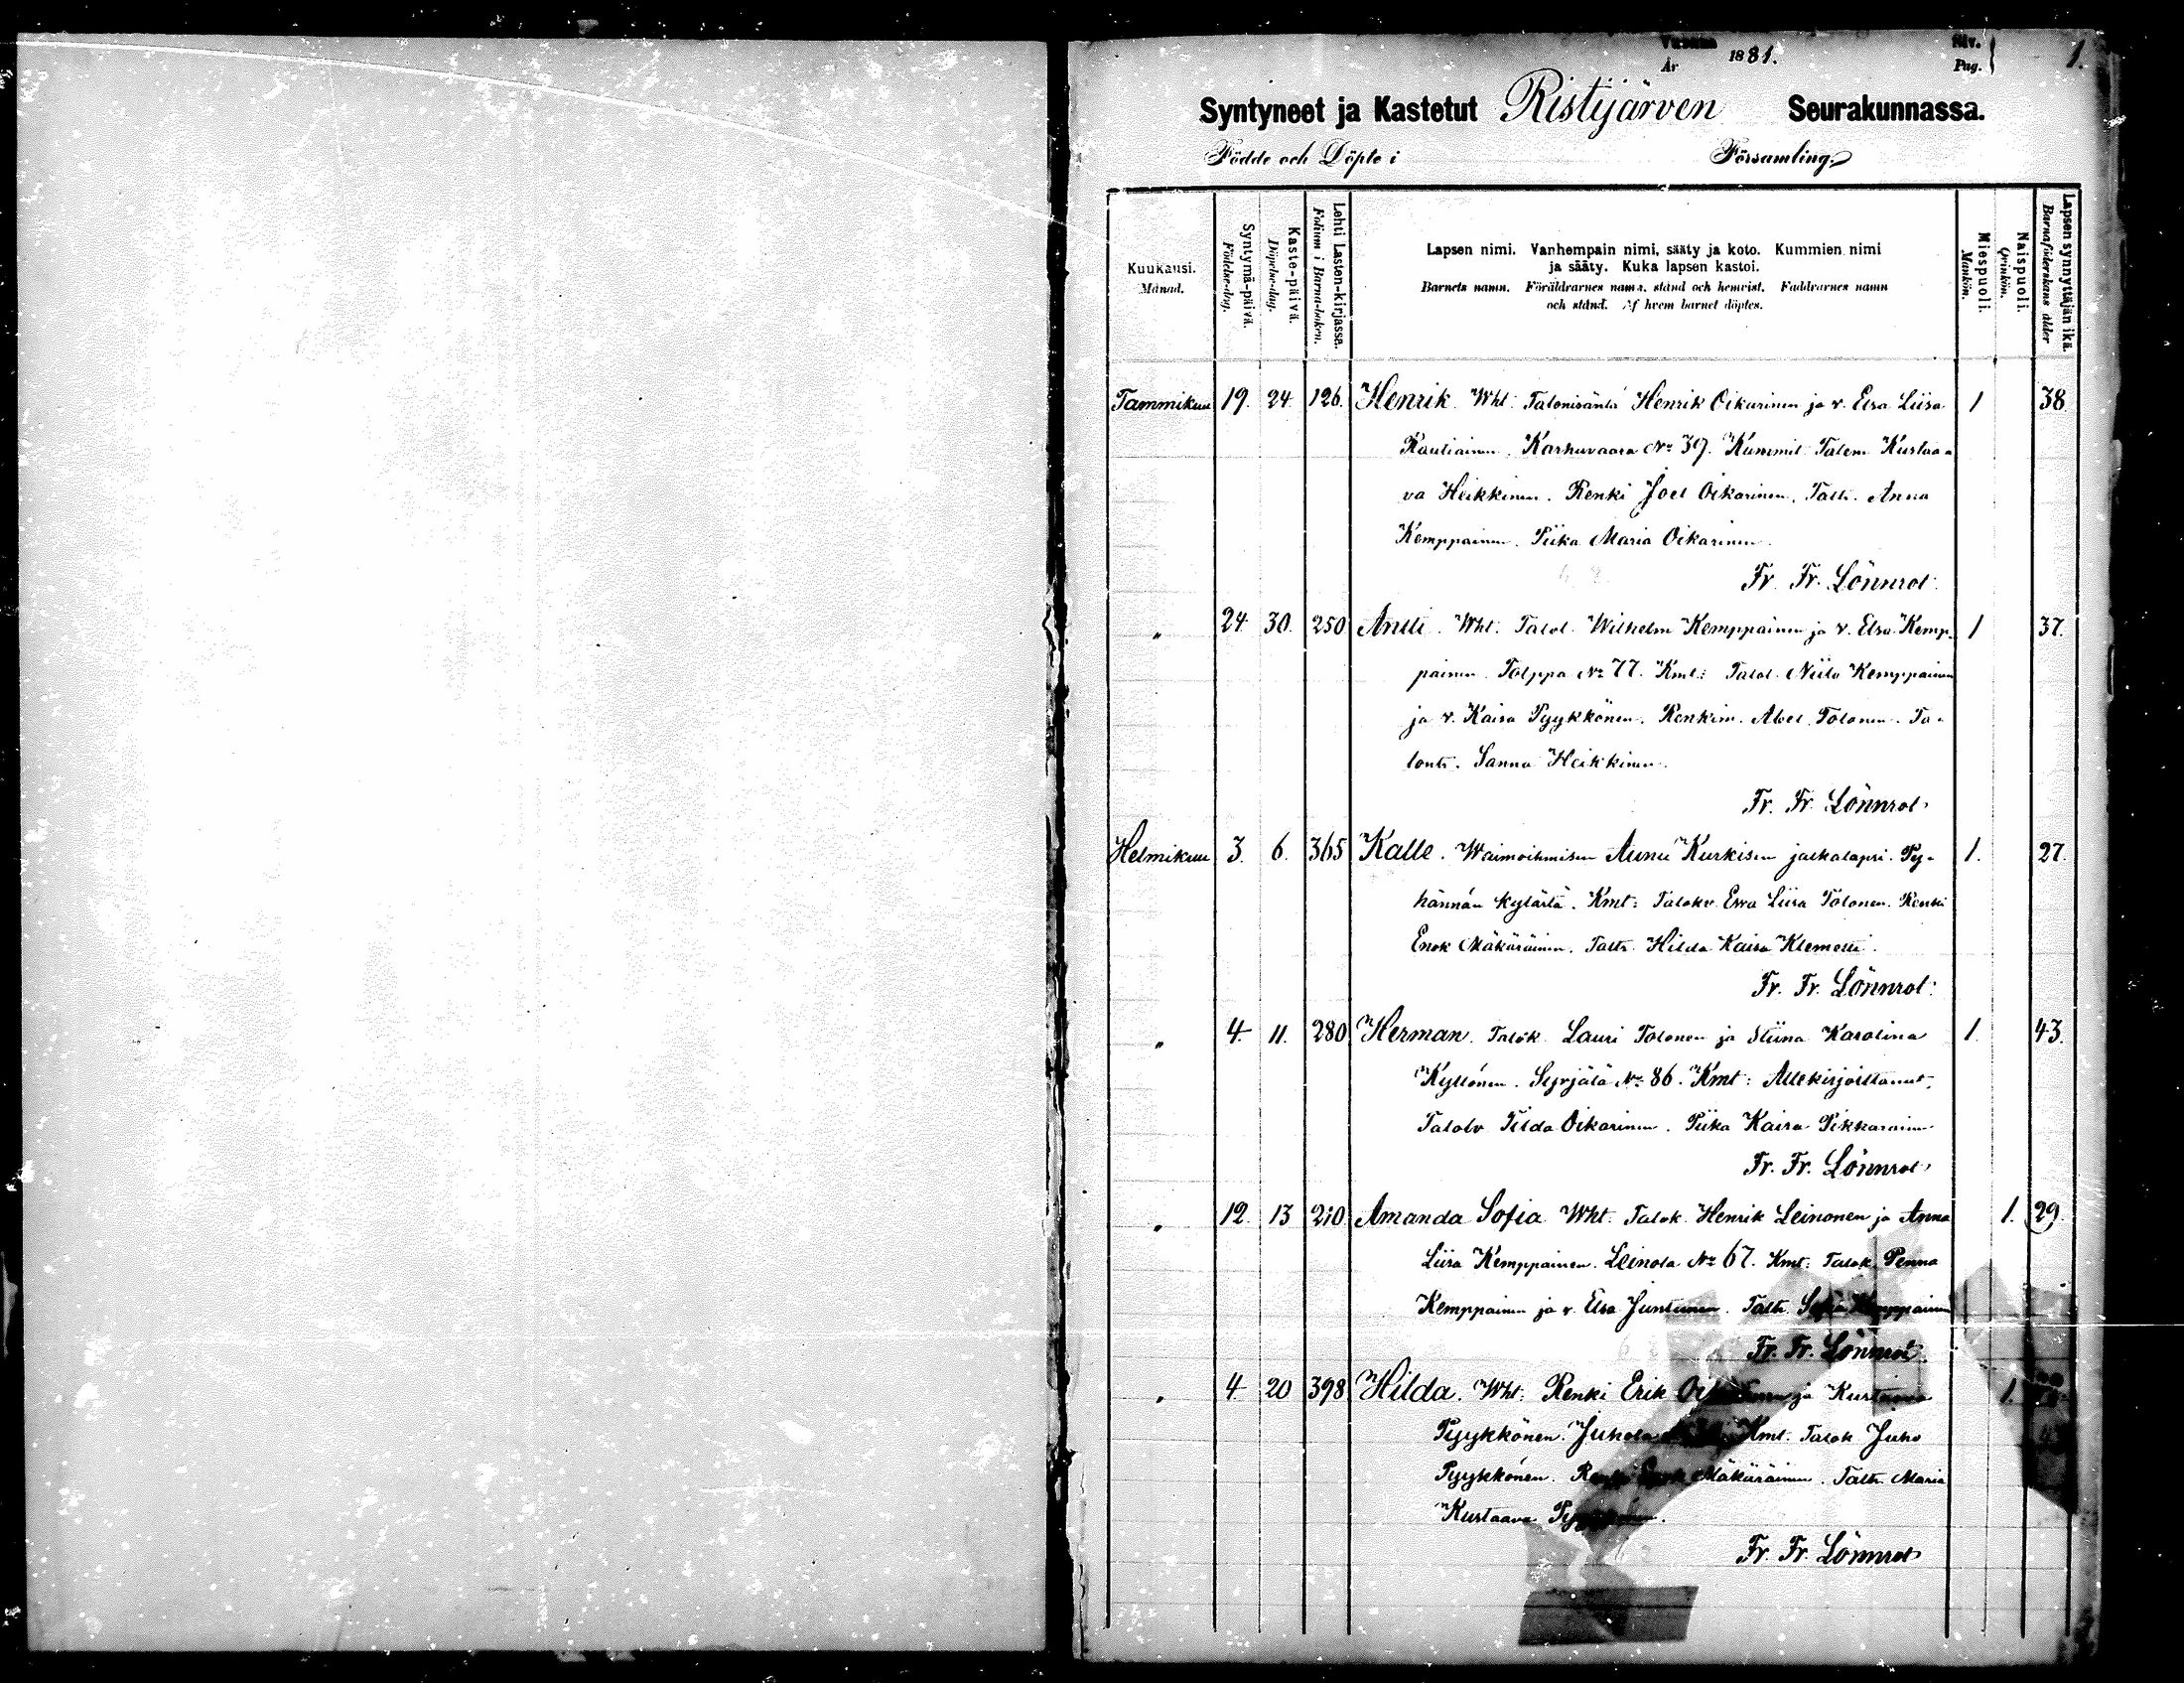 Vuonna 1881. Siv. 1.
År Pag.
Syntyneet ja Kastetut Ristijärven Seurakunnassa.
Födde och Döpte i Församling.
Kuukausi.
Månad.
Syntymä-päivä.
Födelse-dag.
Kaste-päivä.
Döpelse-dag.
Lehti Lasten-kirjassa.
Folium i Barna-boken.
Lapsen nimi. Vanhempain nimi, sääty ja koto. Kummien nimi
ja sääty. Kuka lapsen kastoi.
Barnets namn. Föräldrarnes namn, stånd och hemvist. Faddrarnes namn
och stånd. Af hvem barnet döptes.
Miespuoli.
Mankön.
Naispuoli.
Qvinkön.
Lapsen synnyttäjän ikä.
Barnaföderskans ålder
Tammikuu 19. 24. 126. Henrik. Wht: Talonisäntä Henrik Oikarinen ja v. Elsa Liisa 1 38
Rautiainen. Karhuvaara No 39. Kummit: Talem. Kustaa-
va Heikkinen. Renki Joel Oikarinen. Taltr. Anna
Kemppainen. Piika Maria Oikarinen.
Fr. Fr. Lönnrot.
" 24. 30. 250 Antti. Wht: Talol. Wilhelm Kemppainen ja v. Elsa Kemp- 1 37.
painen. Tolppa No 77. Kmt: Talol. Niilo Kemppainen
ja v. Kaisa Pyykkönen. Renkim. Abel Tolonen. Ta-
lontr. Sanna Heikkinen.
Fr. Fr. Lönnrot.
Helmikuu 3. 6. 365 Kalle. Waimoihmisen Aunu Kurkisen jalkalapsi. Py- 1. 27.
hännän kylästä. Kmt: Talokv. Eva Liisa Tolonen. Renki
Enok Mäkäräinen. Taltr. Hilda Kaisa Klemetti.
Fr. Fr. Lönnrot.
" 4. 11. 280 Herman. Talok. Lauri Tolonen ja Stiina Karolina 1. 43.
Kyllönen. Syrjälä No 86. Kmt: Allekirjoittanut,
Talolv. Tilda Oikarinen. Piika Kaisa Pikkarainen
Fr. Fr. Lönnrot.
" 12. 13 210 Amanda Sofia. Wht: Talok. Henrik Leinonen ja Anna 1. 29.
Liisa Kemppainen. Leinola No 67. Kmt: Talok. Penna
Kemppainen ja v. Elsa Juntunen. Taltr. Sofia Kemppainen
Fr. Fr. Lönnrot.
" 4 20 398 Hilda. Wht: Renki Erik ja Kustaava 1.
Pyykkönen. Juhola Kmt. Talok. Juho
Pyykkönen. Renki Enok Mäkäräinen. Taltr. Maria
Kustaava Pyykkönen.
Fr. Fr. Lönnrot